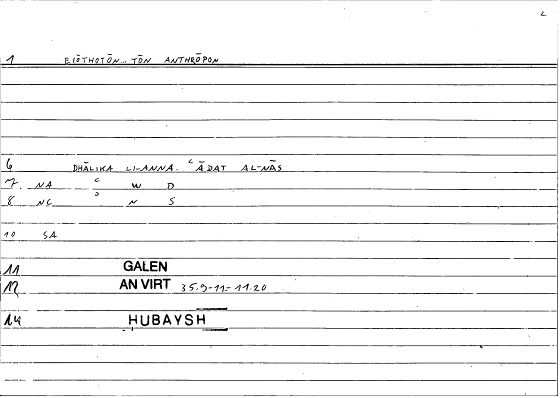 L
1 EIŌTHOTŌN... TŌN ANTHRŌPŌN
6 DHĀLIKA LI-ANNA. ʿĀDAT AL-NĀS
7. NA ʿ W D
8 NC ʾ N S
10 SA
11 GALEN
12 AN VIRT 35.9-11 = 11.20
14 HUBAYSH